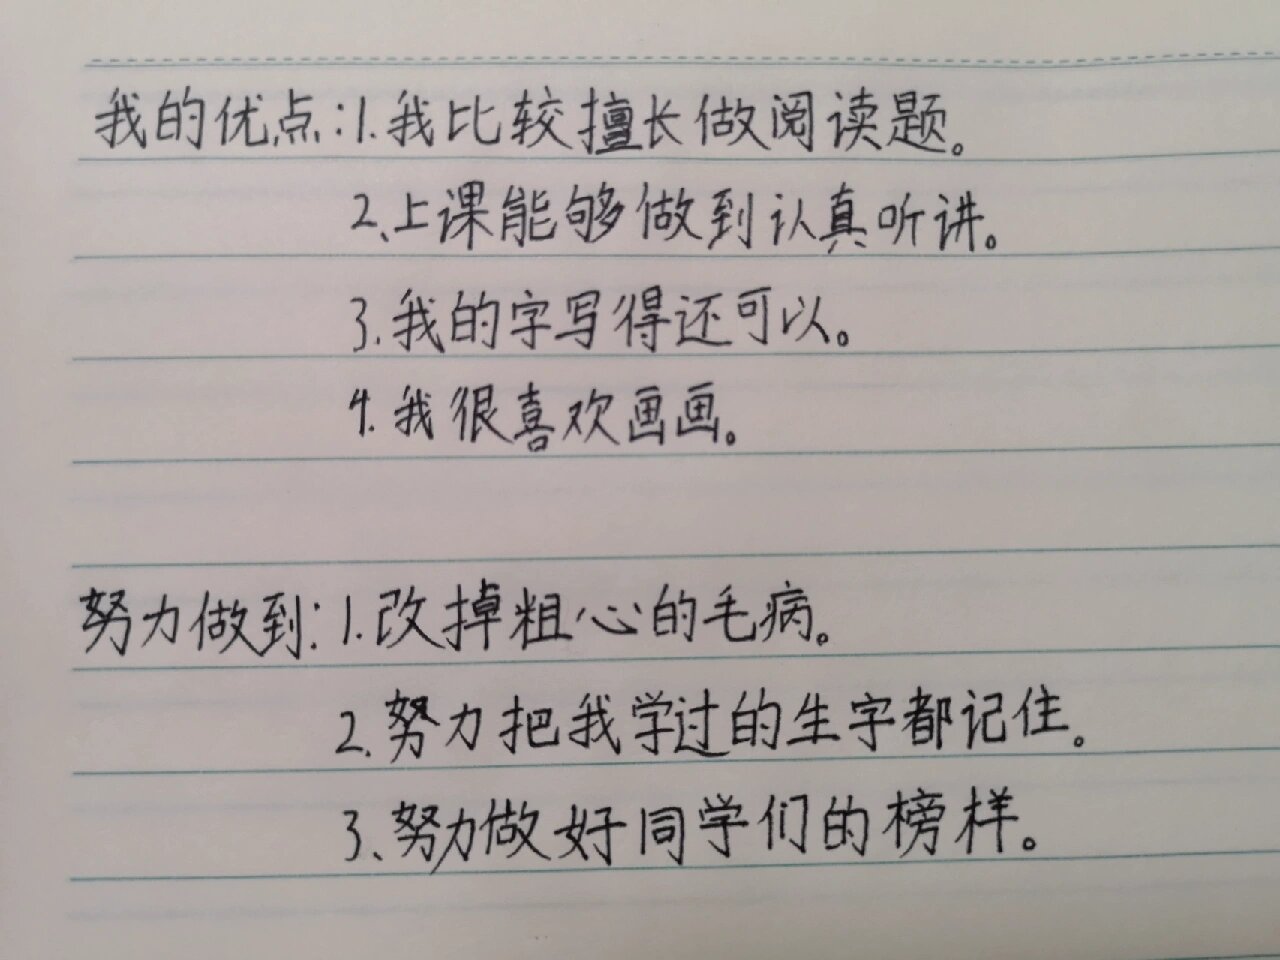 我的优点:1.我比较擅长做阅读题。
2、上课能够做到认真听讲。
3.我的字写得还可以。
4.我很喜欢画画。
努力做到:1.改掉粗心的毛病。
2.努力把我学过的生字都记住。
3、努力做好同学们的榜样。